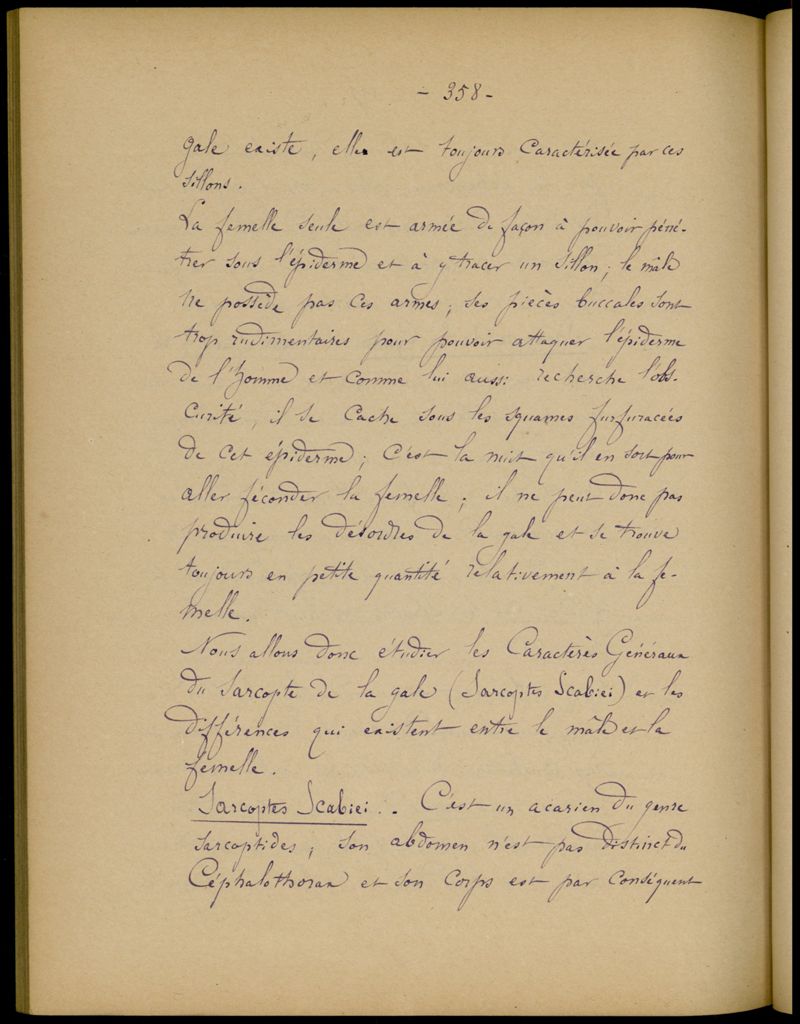 - 358 -
gale existe, elle est toujours Caractérisée par ces
sillons.
La femelle seule est armée de façon à pouvoir péné-
trer sous l'épiderme et à y tracer un sillon ; le mâle
ne possède pas ces armes ; ses pièces buccales sont
trop rudimentaires pour pouvoir attaquer l'épiderme
de l'homme et comme lui aussi recherche l'obs-
curité, il se cache sous les squames furfuracées
de cet épiderme ; c'est la nuit qu'il en sort pour
aller féconder la femelle ; il ne peut donc pas
produire les désordres de la gale et se trouve
toujours en petite quantité relativement à la fe-
melle.
Nous allons donc étudier les Caractères Généraux
du Sarcopte de la gale (Sarcoptes Scabiei) et les
différences qui existent entre le mâle et la
femelle.
Sarcoptes Scabiei. - C'est un acarien du genre
sarcoptides ; son abdomen n'est pas distinct du
Céphalothorax et son corps est par conséquent